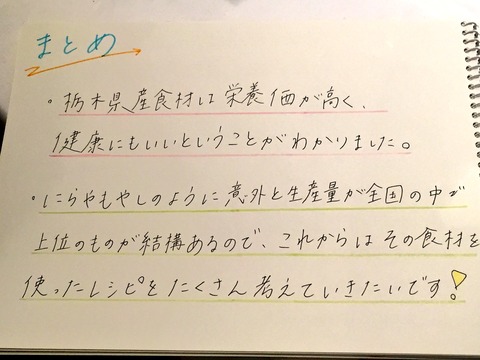 まとめ
・栃木県産食材は栄養価が高く、
健康にもいいということがわかりました。
・にらやもやしのように意外と生産量が全国の中で
上位のものが結構あるので、これからはその食材を
使ったレシピをたくさん考えていきたいです!